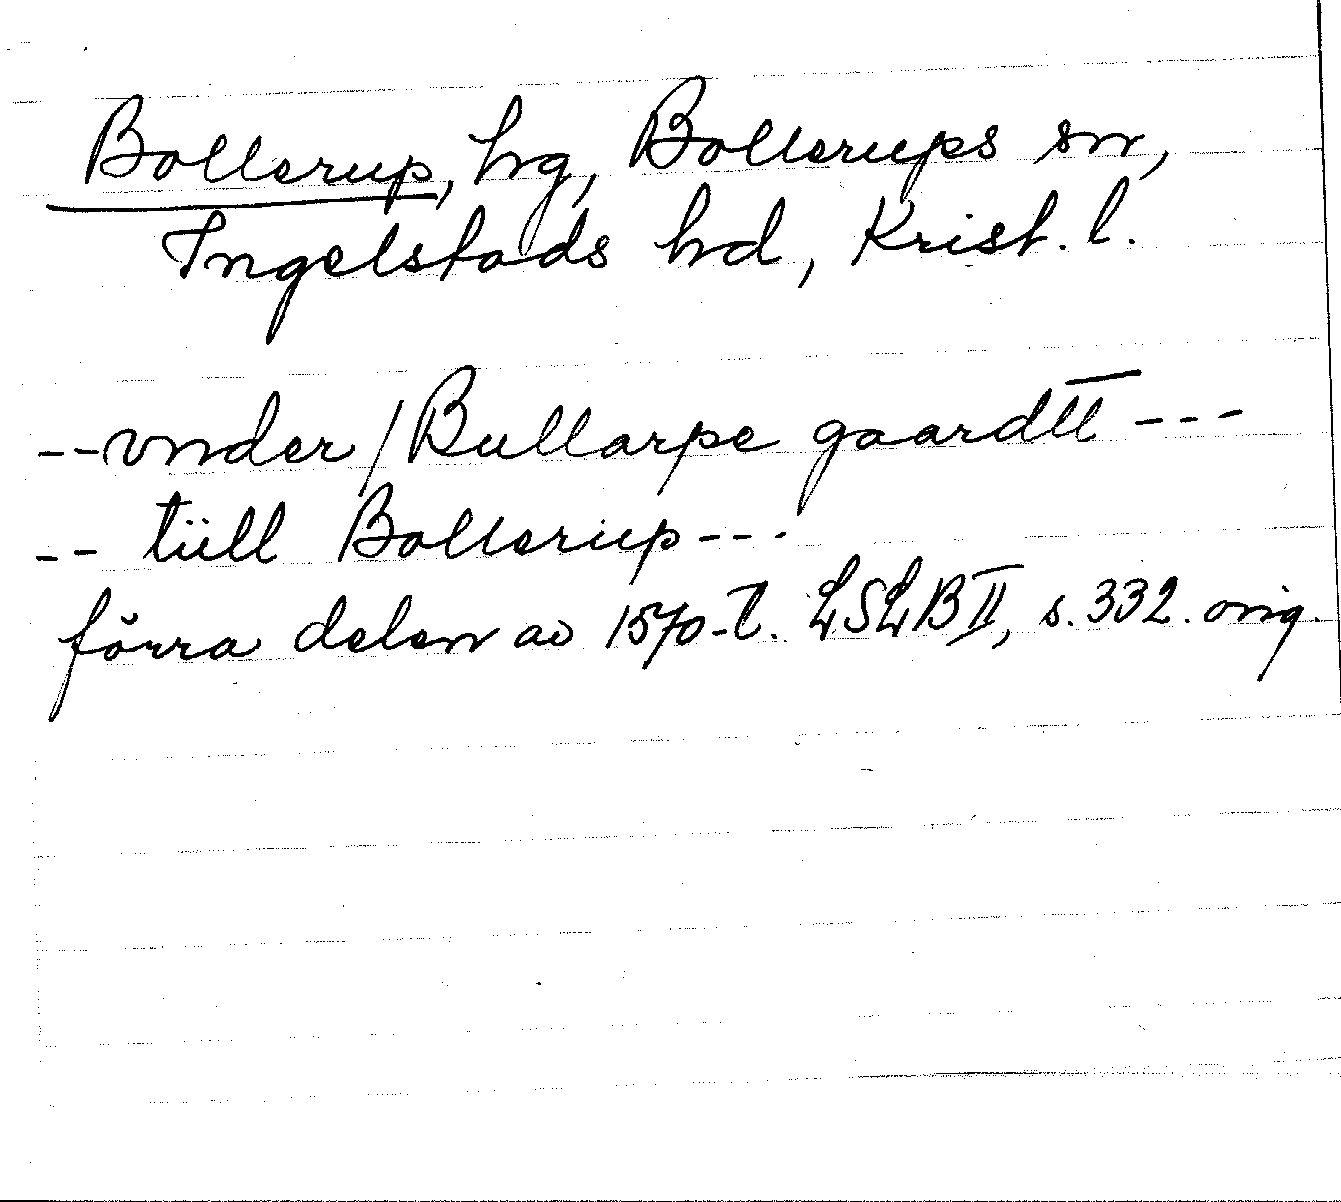 Bollerup, hg, Bollerups sn,
Ingelstads hd, Krist. l.
--vnder / Bullarpe gaardtt ---
-- tiill Bollerup ---
förra delen av 1570-t. LSLB II, s. 332. orig.